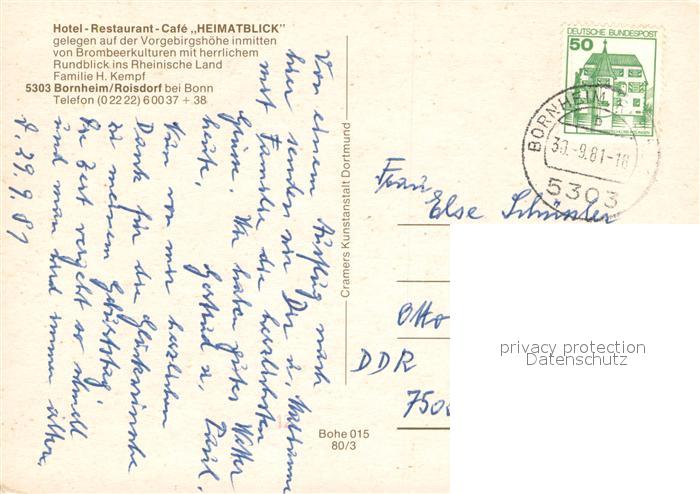 Hotel - Restaurant - Café „HEIMATBLICK"
gelegen auf der Vorgebirgshöhe inmitten
von Brombeerkulturen mit herrlichem
Rundblick ins Rheinische Land
Familie H. Kempf
5303 Bornheim/Roisdorf bei Bonn
Telefon (0 22 22) 6 00 37 + 38
Von einem Ausflug nach
hier senden wir Dir u.
mit Familie die herzlichsten
Grüsse. Wir haben gutes Wetter
heute. Gertrud u. Paul.
Nun von mir herzlichen
Dank für die Glückwünsche
zu meinem Geburtstag.
Die Zeit vergeht so schnell
und man wird immer älter.
d. 29.9.81
Cramers Kunstanstalt Dortmund
DEUTSCHE BUNDESPOST
50
BORNHEIM
b
30.-9.81-18
5303
Frau
Else Schüssler
Otto
DDR
750
privacy protection
Datenschutz
Bohe 015
80/3